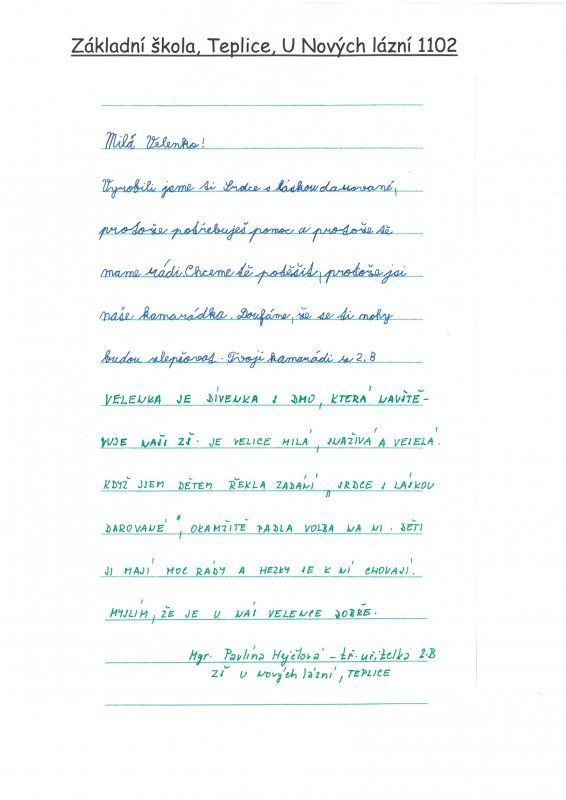 Základní škola, Teplice, U Nových lázní 1102
Milá Velenko!
Vyrobili jsme ti Srdce s láskou darované,
protože potřebuješ pomoc a protože tě
mame rádi. Chceme tě potěšit, protože jsi
naše kamarádka. Doufáme, že se ti nohy
budou zlepšovat. Tvoji kamarádi z 2.B
VELENKA JE DÍVENKA S DMO, KTERÁ NAVŠTĚ-
VUJE NAŠI ZŠ. JE VELICE MILÁ, SNAŽIVÁ A VESELÁ.
KDYŽ JSEM DĚTEM ŘEKLA ZADÁNÍ „SRDCE S LÁSKOU
DAROVANÉ", OKAMŽITĚ PADLA VOLBA NA NI. DĚTI
JI MAJÍ MOC RÁDY A HEZKY SE K NÍ CHOVAJÍ.
MYSLÍM, ŽE JE U NÁS VELENCE DOBŘE.
Mgr. Pavlína - tř. učitelka 2.B
ZŠ U Nových lázní, TEPLICE